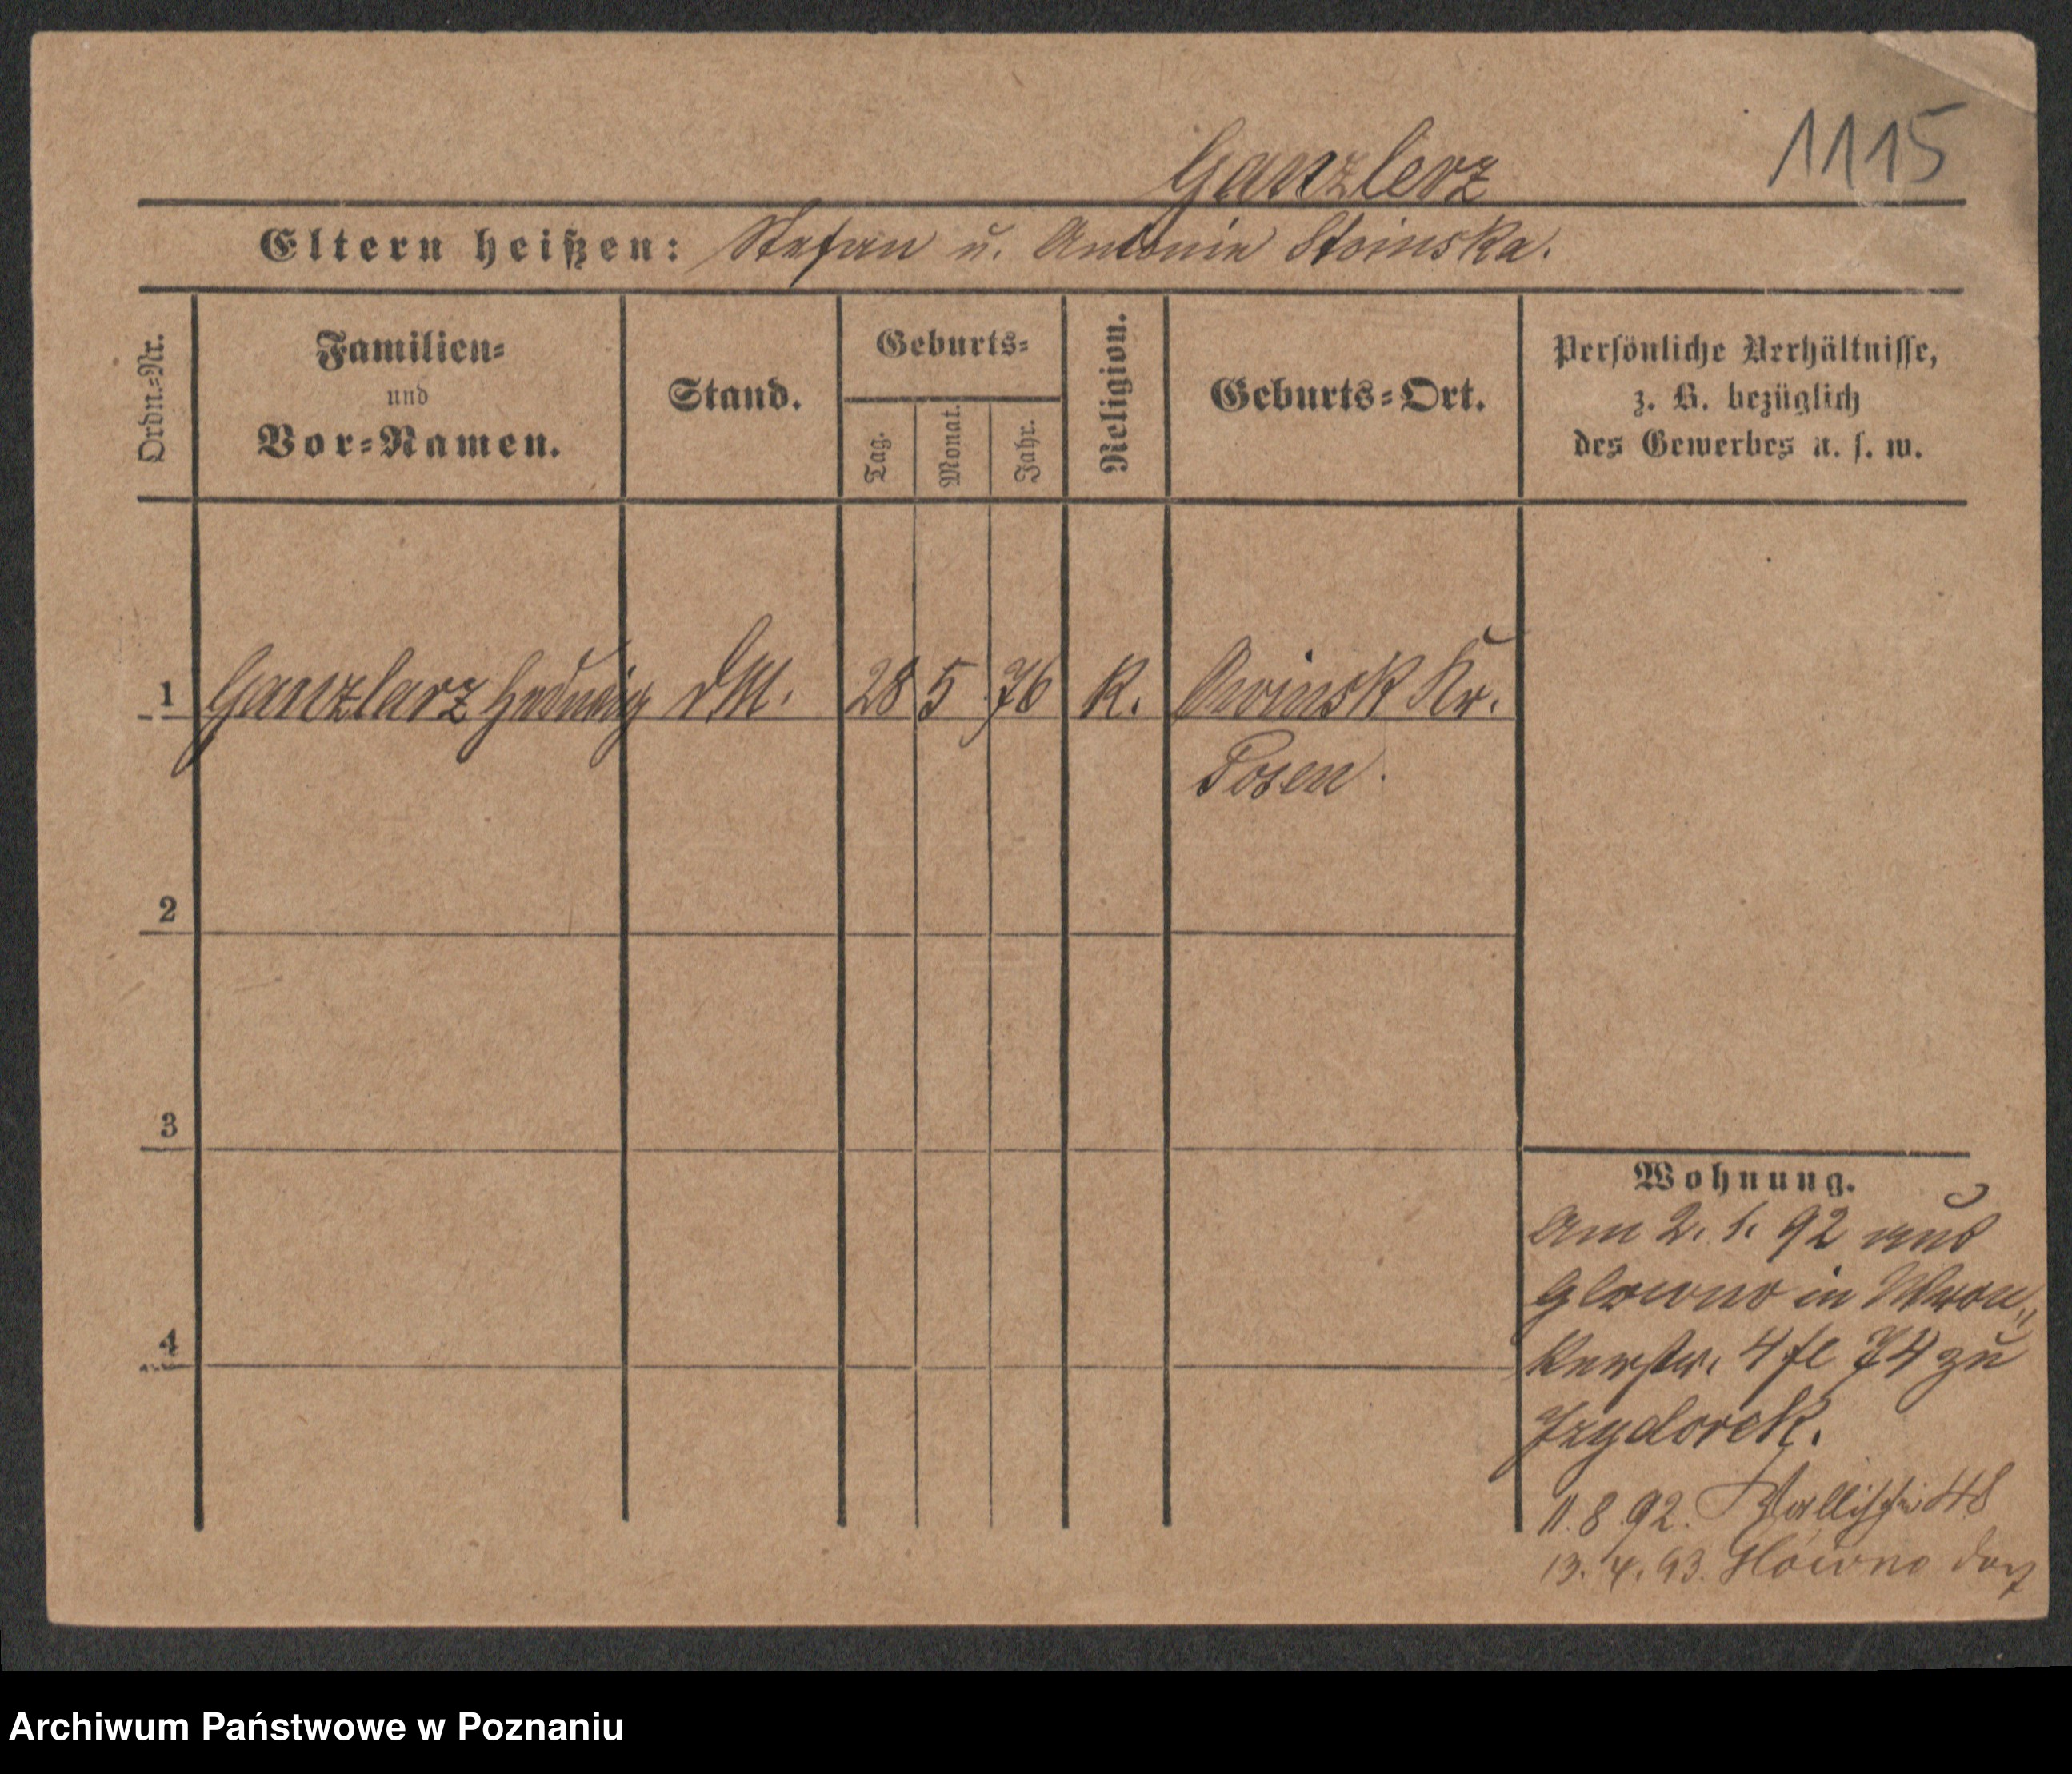 Ganzlerz 1115
Eltern heißen: Stefan u. Antonie Stoinska.
Ordn.-Nr.
Familien-
und
Vor-Namen.
Stand.
Geburts-
Tag.
Monat.
Jahr.
Religion.
Geburts-Ort.
Persönliche Verhältnisse,
z. B. bezüglich
des Gewerbes u. s. w.
1 Ganzlarz Hedwig DM. 28 5 76 K. Owinsk Kr.
Posen.
2
3
4
Wohnung.
Am 2. 1. 92 aus
Glowno in Wron„
kerstr. 4 fl 74 zu
Izydorek.
11. 8. 92. Wallischei 48
13. 4. 93. Główno
Archiwum Państwowe w Poznaniu